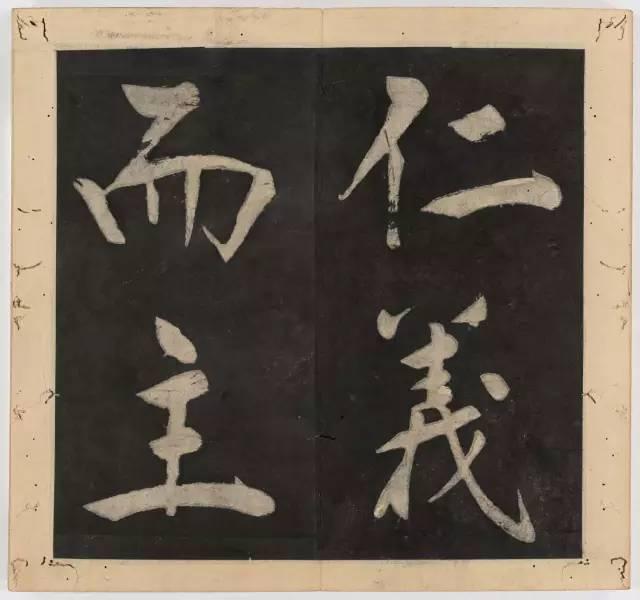 仁義
而主